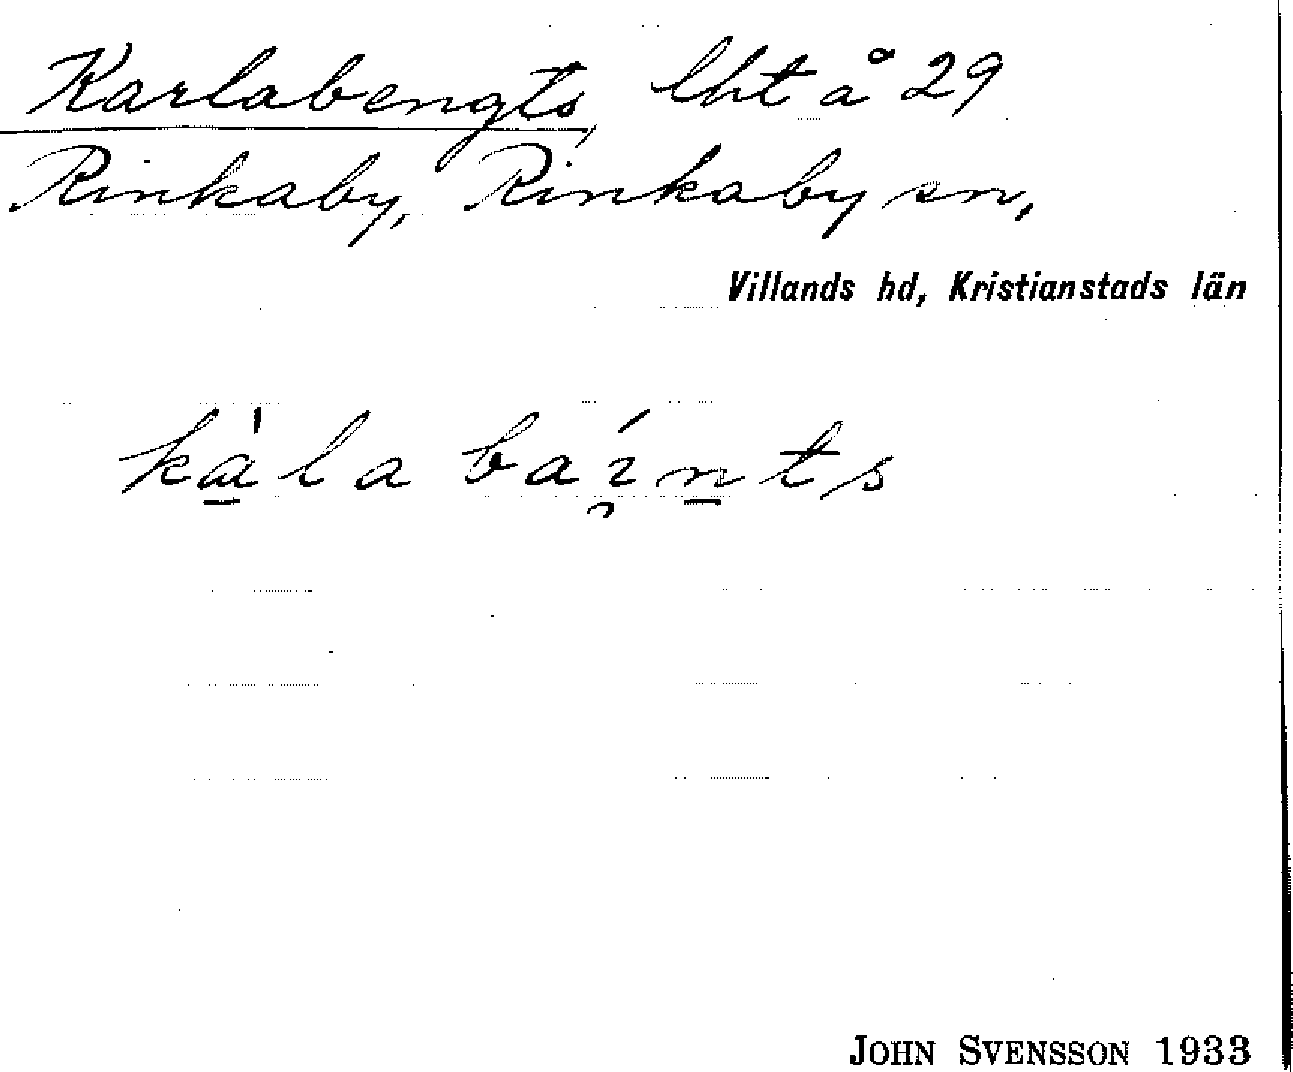 Karlabengts, lht å 29
Rinkaby, Rinkaby sn,
Villands hd, Kristianstads län
kà̱la baı̯́ṉts
JOHN SVENSSON 1933